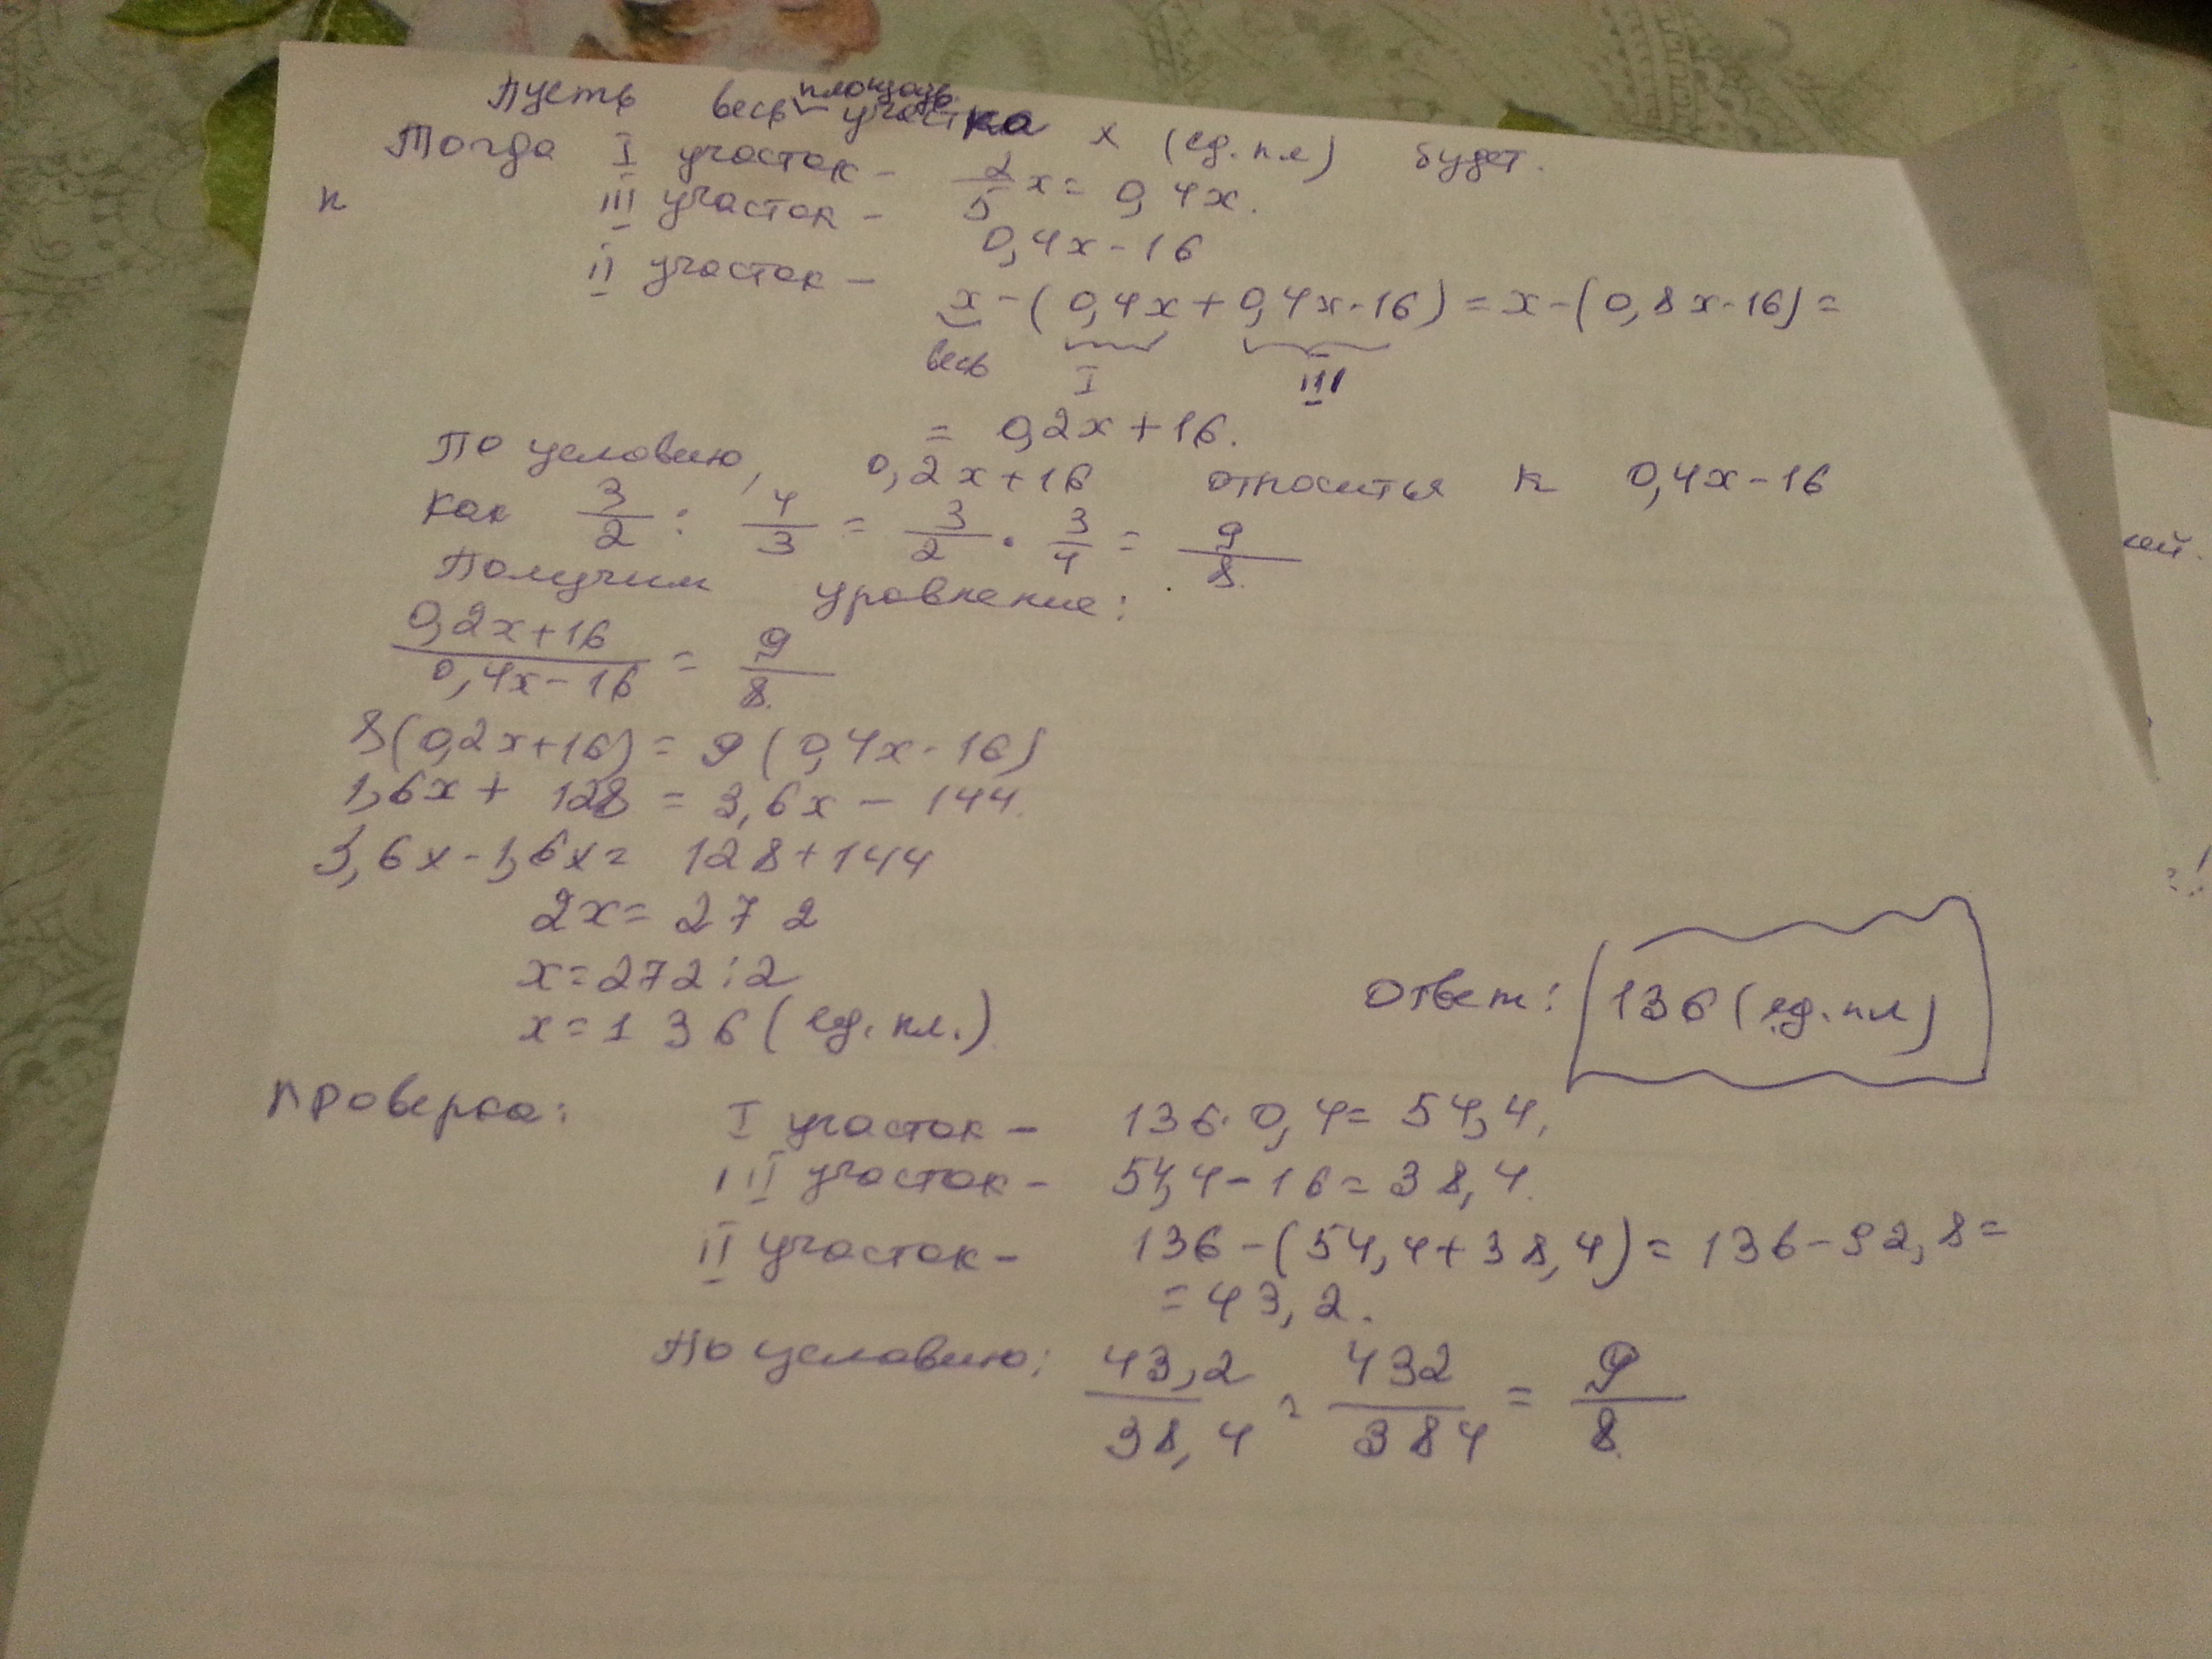 Пусть весь площадь участка x (ед. пл) будет.
Тогда I участок - 2/5 x = 0,4x.
к III участок - 0,4x - 16
II участок - x - (0,4x + 0,4x - 16) = x - (0,8x - 16) =
весь I III
= 0,2x + 16.
По условию, 0,2x + 16 относится к 0,4x - 16
как 3/2 : 4/3 = 3/2 · 3/4 = 9/8.
Получим уравнение:
0,2x+16/0,4x-16 = 9/8.
8(0,2x+16) = 9(0,4x-16)
1,6x + 128 = 3,6x - 144.
3,6x - 1,6x = 128 + 144
2x = 272
x = 272 : 2
x = 136 (ед. пл.)
Ответ: 136 (ед. пл)
Проверка: I участок - 136 · 0,4 = 54,4.
III участок - 54,4 - 16 = 38,4.
II участок - 136 - (54,4 + 38,4) = 136 - 92,8 =
= 43,2.
По условию: 43,2/38,4 = 432/384 = 9/8.
ей.